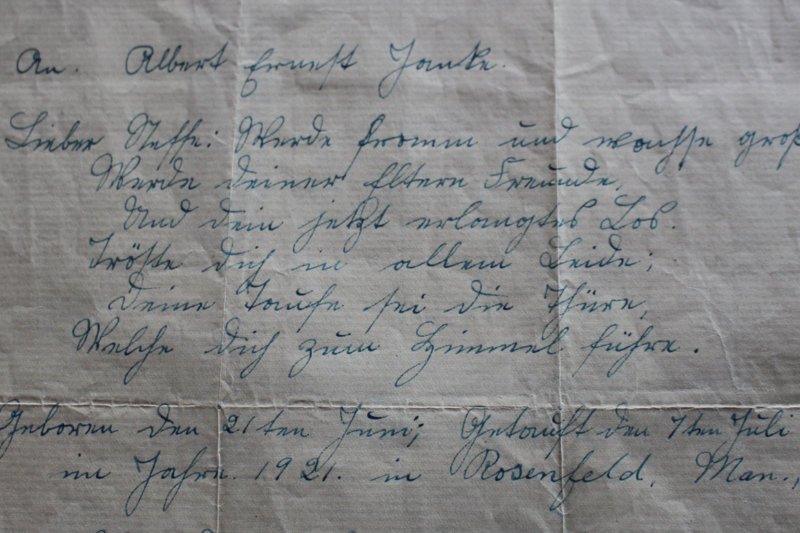 An. Albert Ernest Janke.
Lieber Steffe: Werde fromm und wachse groß
Werde deiner Eltern Freunde,
Und dein jetzt erlangtes Los.
Tröste dich in allem Leide;
Deine Taufe sei die Thüre,
Welche dich zum Himmel führe.
Geboren den 21ten Juni; Getauft den 7ten Juli
im Jahre. 1921. in Rosenfeld, Man.,